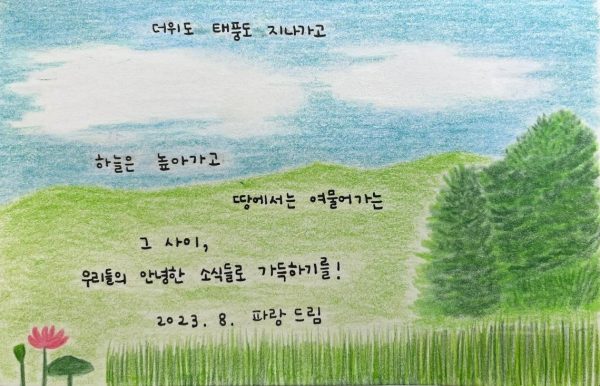 더위도 태풍도 지나가고
하늘은 높아가고
땅에서는 여물어가는
그 사이,
우리들의 안녕한 소식들로 가득하기를!
2023. 8. 파랑 드림